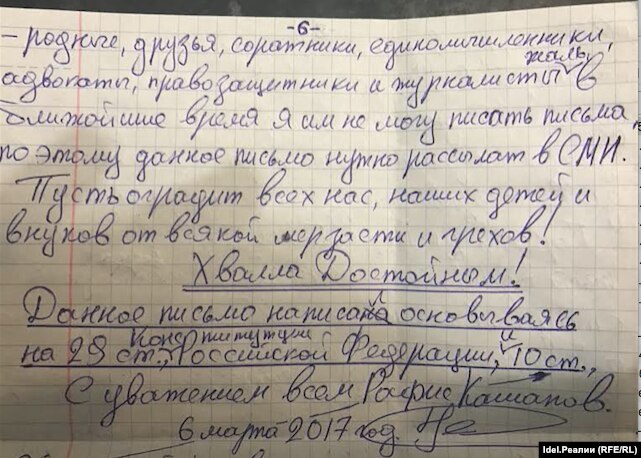 -6-
- родные, друзья, соратники, единомышленники,
адвокаты, правозащитники и журналисты жаль в
ближойшие время я им не могу писать письма
по этому данное письмо нужно рассылат в СМИ.
Пусть оградит всех нас, наших детей и
внуков от всякой мерзасти и грехов!
Хвалла Достойным!
Данное письмо написал основываясь
на 29 ст., Конституции Российской Федерации, и 10 ст.,
С уважением всем Рафис Кашапов.
6 марта 2017 год.
Idel.Реалии (RFE/RL)